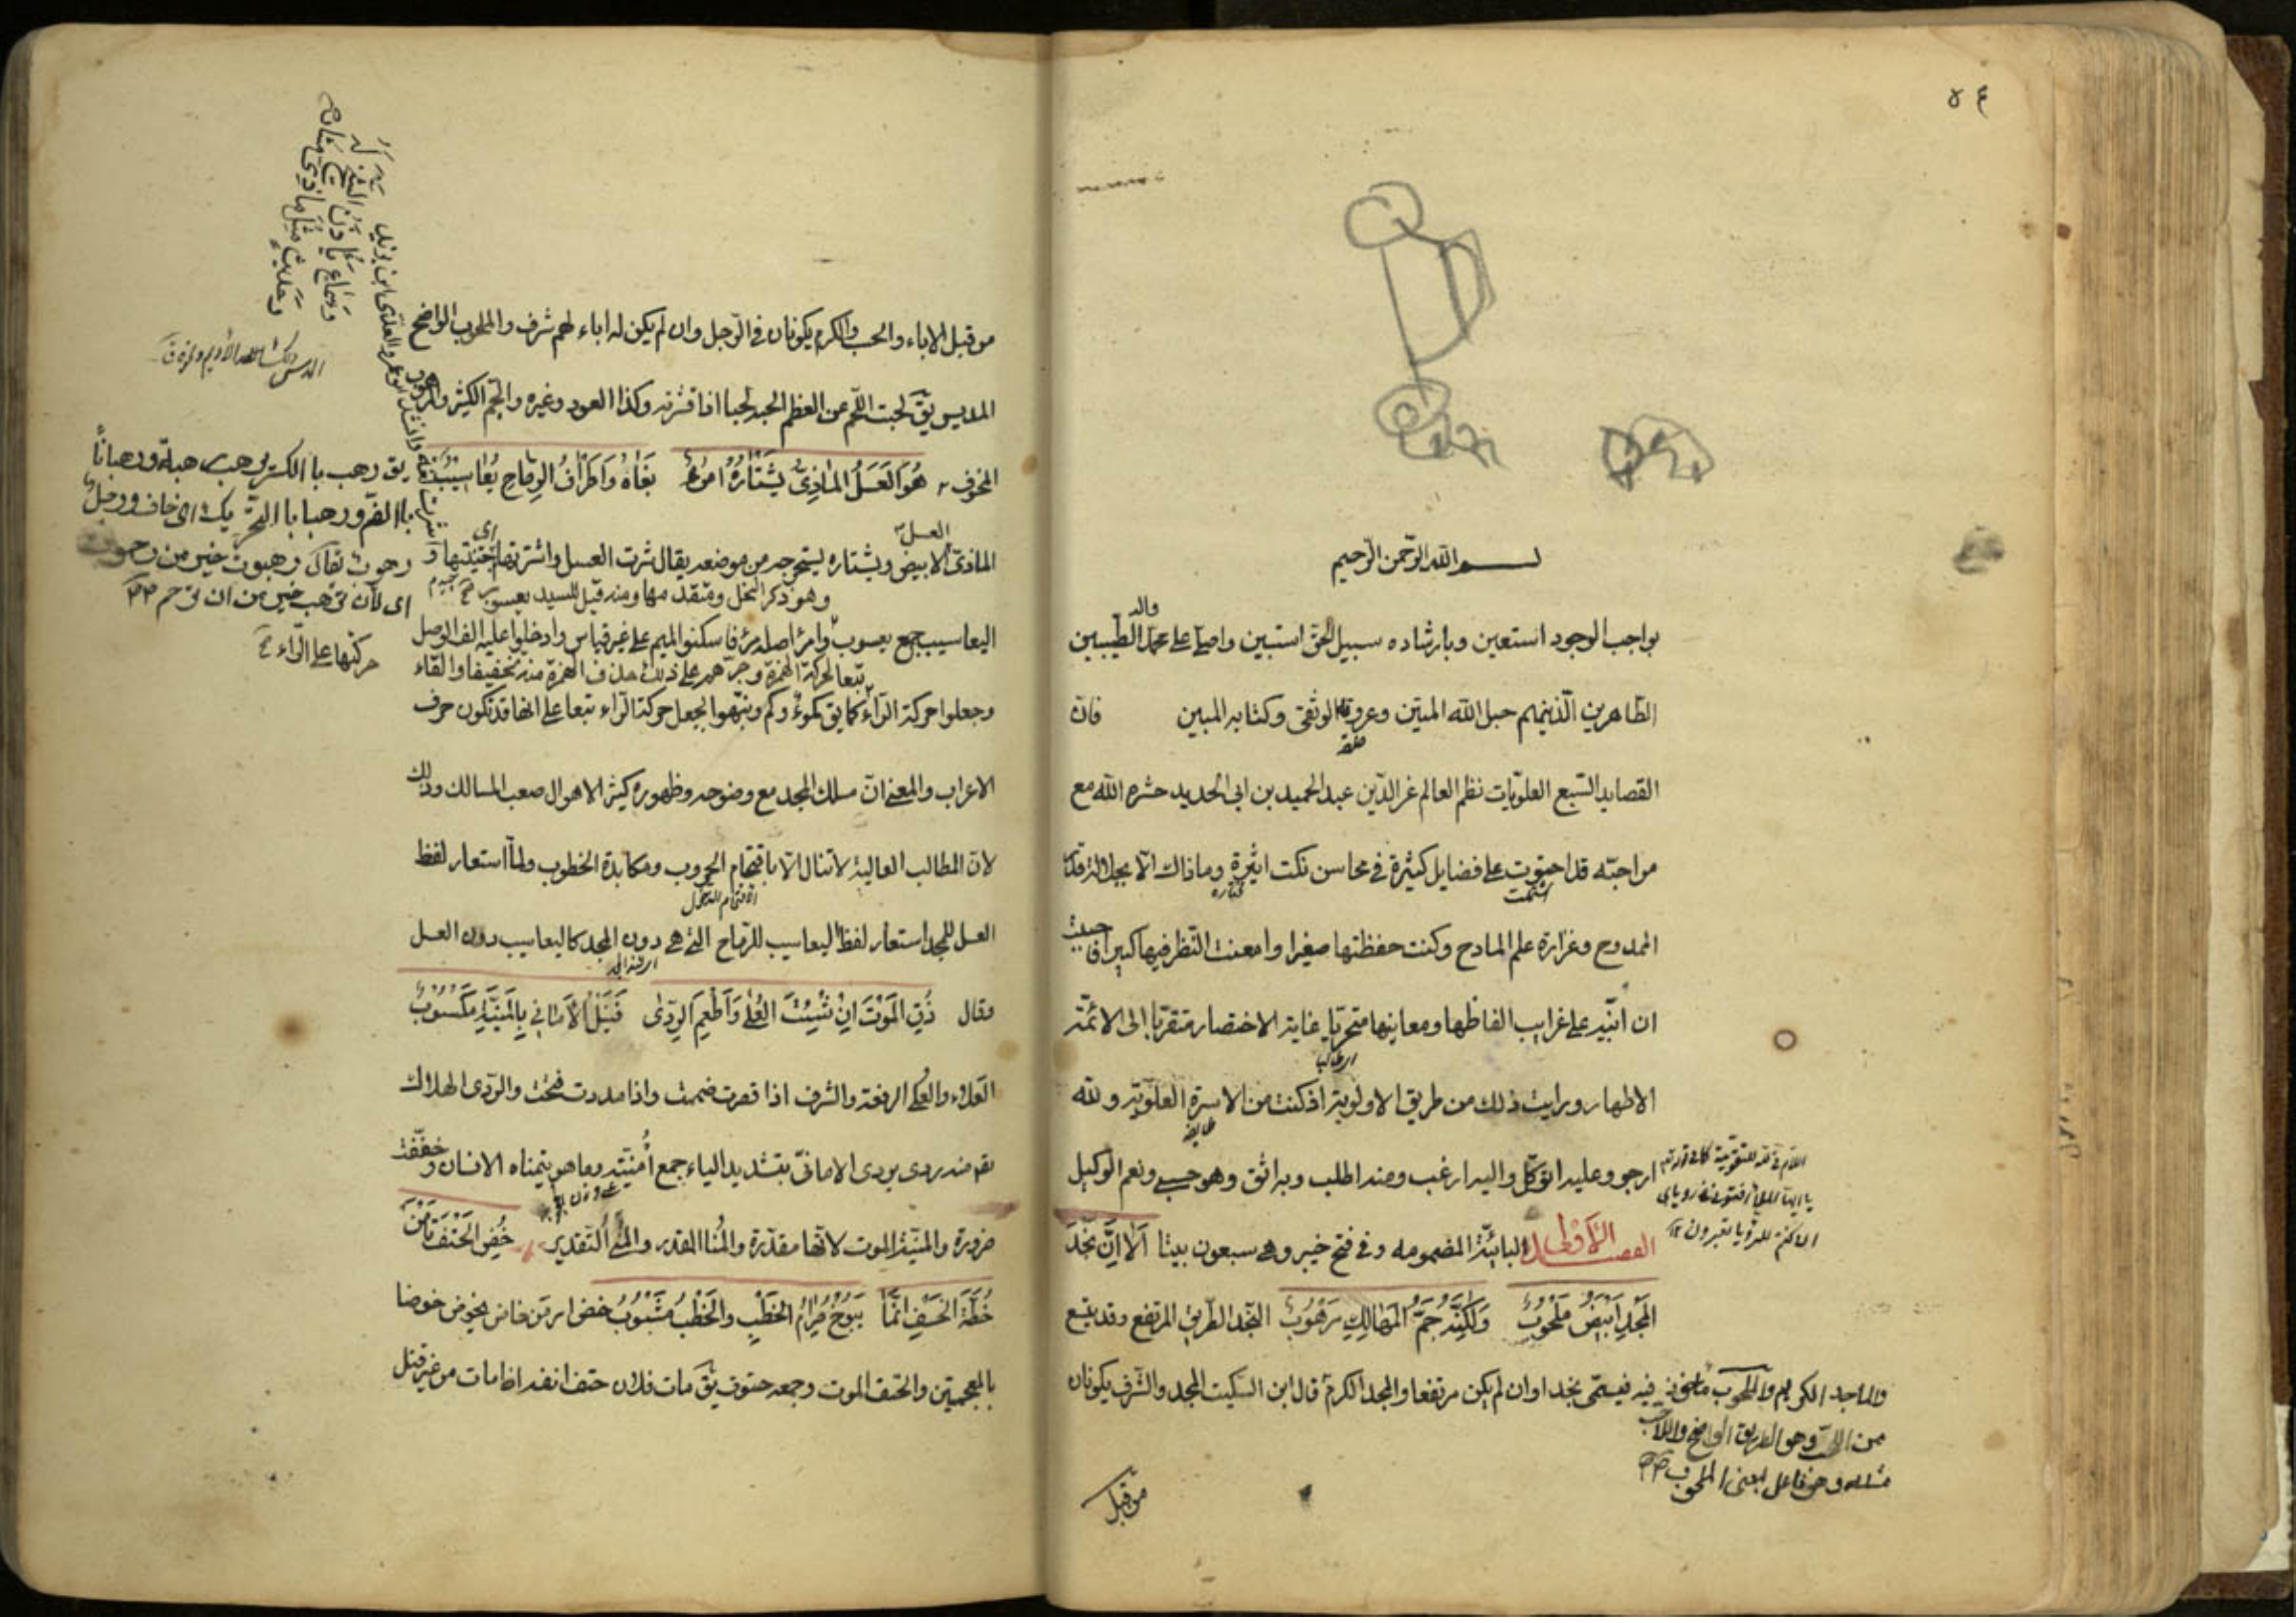 ٥٤
بسم الله الرحمن الرحيم
بواجب الوجود استعين وبارشاده سبيل الحق استبين واصلي على محمد واله الطيبين
الطاهرين الذينهم حبل الله المتين وعروته الوثقى وكتابه المبين فان
القصايد السبع العلويات نظم العالم عز الدين عبد الحميد بن ابي الحديد حشره الله مع
من احبه قد احتوت على فضايل كثيرة في محاسن نكت اثيرة وما ذاك الا بجلالة قدر
اشتملت
الممدوح وغزارة علم المادح وكنت حفظتها صغيرا وامعنت النظر فيها كبيرا فاحببت
ان انبه على غرايب الفاظها ومعانيها متحريا غاية الاختصار متقربا الى الائمة
اي طالبا
الاطهار ورايت ذلك من طريق الاولوية اذ كنت من الاسرة العلوية ولله
طايفة
ارجو وعليه اتوكل واليه ارغب ومنه اطلب وبه اثق وهو حسبي ونعم الوكيل
يا ايها الملأ افتوني في رؤياي
ان كنتم للرؤيا تعبرون
القصيدة الاولى البائية المضمومه وفي فتح خيبر وهي سبعون بيتا اَلَا اِنَّ نَجْدَ
المَجْدِ اَبْيَضُ مَلْحُوبُ وَلٰكِنَّهُ جَمُّ المَهَالِكِ مَرْهُوبُ النجد الطريق المرتفع وقد يتسع
فيه فيسمى نجدا وان لم يكن مرتفعا والمجد الكرم قال ابن السكيت المجد والشرف يكونان
والماجد الكريم والملحوب ماخوذ
من اللحب وهو الطريق الواضح واللاحب
مثله وهو فاعل بمعنى الملحوب
من قبل
من قبل الاباء والحسب والكرم يكونان في الرجل وان لم يكن له اباء لهم شرف والملحوب الواضح
المديس يق لحبت اللحم عن العظم الحبه لحبا اذا قشرته وكذا العود وغيره والجم الكثير والمرهوب
المخوف هُوَ العَسَلُ المَاذِيُّ يَشْتَارُهُ امْرُءٌ بَغَاهُ وَاَطْرَافُ الرِمَاحِ يَعَاسِيبُ
العسل
الماذي الابيض ويشتاره يستخرجه من موضعه يقال شرت العسل واشترتها اي اجتنيتها و
وهو ذكر النحل ومتقدمها ومنه قيل للسيد يعسوب
اليعاسيب جمع يعسوب وامرء اصله مرء فاسكنوا الميم على غير قياس وادخلوا عليه الف الوصل
تبعا لحركة الهمزة وجرهم على ذلك حذف الهمزة منه تخفيفا والقاء
حركتها على الراء
وجعلوا حركة الراء كما يق كموء وكم ونبهوا بجعل حركة الراء تبعا على انها قد تكون حرف
الاعراب والمعنى ان مسلك المجد مع وضوحه وظهوره كثير الاهوال صعب المسالك وذلك
لان المطالب العالية لا تنال الا باقتحام الحروب ومكابدة الخطوب ولما استعار لفظ
الاقتحام الدخول
العسل للمجد استعار لفظ اليعاسيب للرماح التي هي دون المجد كاليعاسيب دون العسل
وقال ذُقِ المَوْتَ اِنْ شِئْتَ العُلٰى وَاَطْعِمِ الرَدٰى فَنَيْلُ الاَمَانِي بِالمَنِيَّةِ مَكْسُوبُ
العلاء والعلى الرفعة والشرف اذا قصرت ضممت واذا مددت فتحت والردى الهلاك
تقم منه ردى يردى الاماني بتشديد الياء جمع اُمنيته وما هو يتمناه الانسان وخففت
ضرورة والمنية الموت لانها مقدرة والمُنا القدر والمنى التقدير خُضِ الحَتْفَ تَأْمَنْ
خُطَّةَ الخَسْفِ اِنَّمَا يَبُوخُ ضِرَامُ الخَطْبِ والخَطْبُ مَشْبُوبُ خض امر من خاض يخوض خوضا
بالمعجمتين والحتف الموت وجمعه حتوف يق مات فلان حتف انفه اذا مات من غير قتل
يق رهب با الكسر يرهب رهبة ورهبانا
با الضم ورهبا با التحريك اي خاف ورجل
رهبوت يقال رهبوت خير من رحموت
اي لان ترهب خير من ان ترحم
وَسَمَاعٍ يَأذَنُ الشَّيْخُ لَهُ
وَحَدِيثٍ مِثْلِ مَاذِيٍّ مُشَارِ